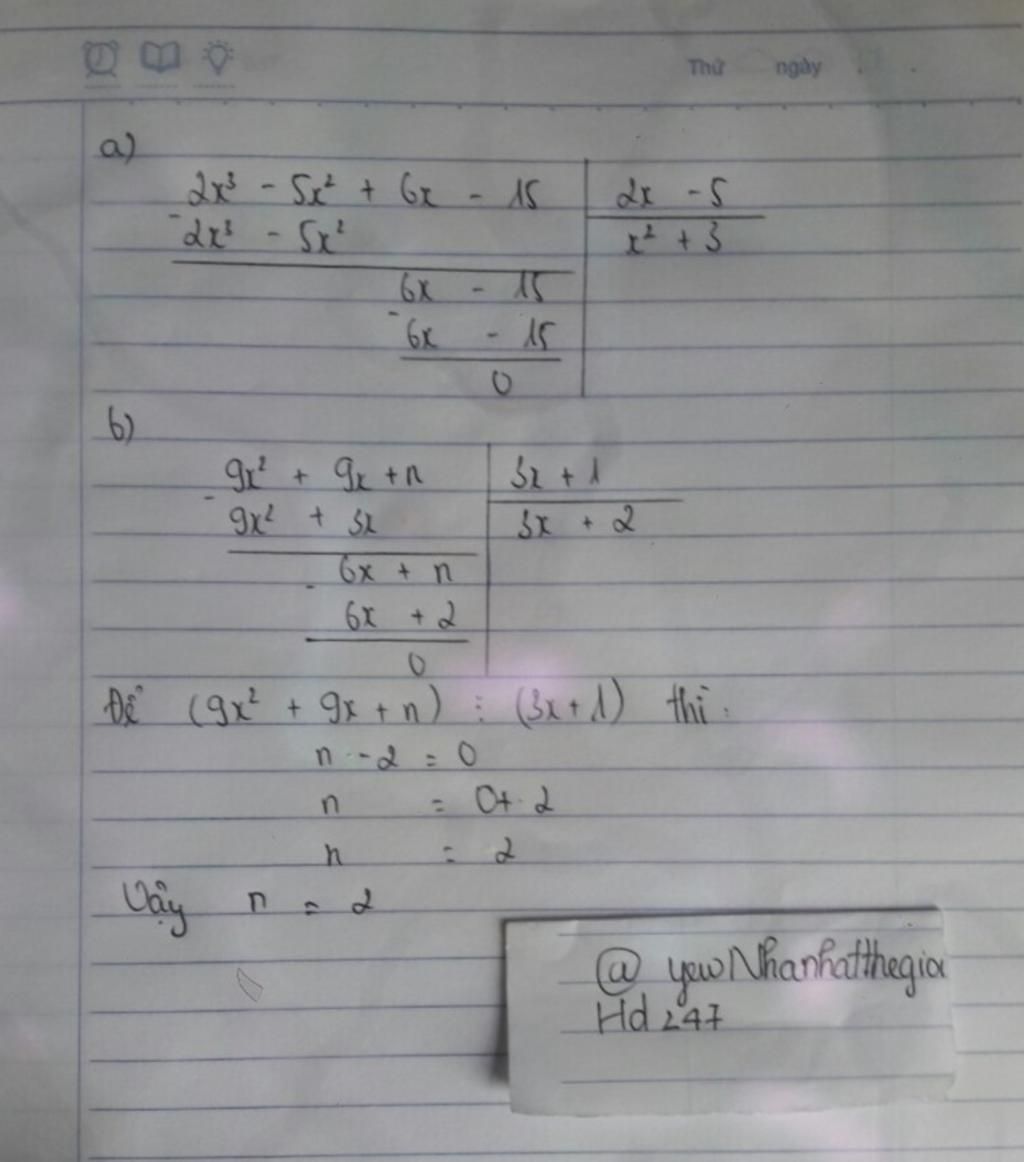 Thứ ngày
a)
2x³ - 5x² + 6x - 15 | 2x - 5
- 2x³ - 5x² | x² + 3
6x - 15
- 6x - 15
0
b)
9x² + 9x + n | 3x + 1
- 9x² + 3x | 3x + 2
6x + n
- 6x + 2
0
Để (9x² + 9x + n) ⋮ (3x + 1) thì:
n - 2 = 0
n = 0 + 2
n = 2
Vậy n = 2
@ yewNhanhatthegia
Hd 247